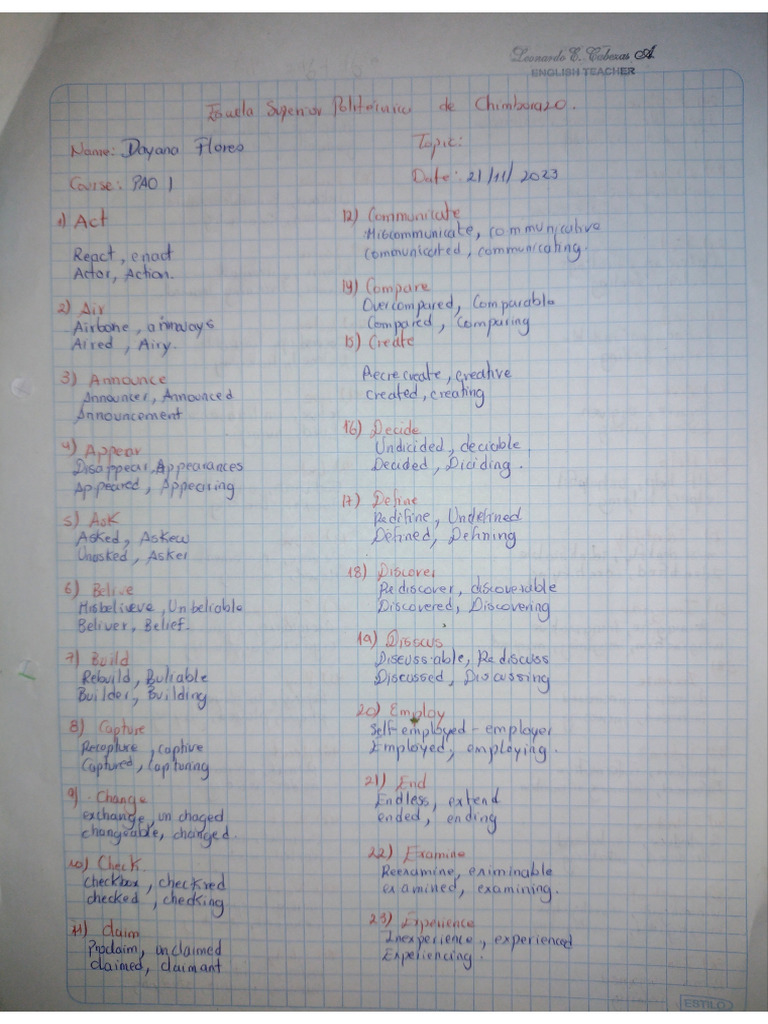 Leonardo E. Cabezas A.
ENGLISH TEACHER
Escuela Superior Politécnica de Chimborazo.
Name: Dayana Flores
Topic:
Course: PAO 1
Date: 21/11/2023
1) Act
React, enact
Actor, Action.
2) Air
Airbone, airways
Aired, Airy.
3) Announce
Announcer, Announced
Announcement
4) Appear
Disappear, Appearances
Appeared, Appearing
5) Ask
Asked, Askew
Unasked, Asker
6) Belive
Misbeliveve, Unbeliable
Beliver, Belief.
7) Build
Rebuild, Buliable
Builder, Building
8) Capture
Recapture, captive
Captured, capturing
9) Change
exchange, unchaged
changeable, changed.
10) Check
checkbox, checkred
checked, checking
11) claim
Proclaim, unclaimed
claimed, claimant
12) Communicate
Miscommunicate, communicative
communicated, communicating.
14) Compare
Overcompared, Comparable
Compared, Comparing
15) Create
Recrecreate, creative
created, creating
16) Decide
Undicided, deciable
Decided, Diciding.
17) Define
Redifine, Undefined
Defined, Defining
18) Discover
Rediscover, discoverable
Discovered, Discovering
19) Disscus
Discussable, Rediscuss
Discussed, Discussing
20) Employ
Self-employed - employer
Employed, employing.
21) End
Endless, extend
ended, ending
22) Examine
Reexamine, eximinable
examined, examining.
23) Experience
Inexperience, experienced
Experiencing.
ESTILO